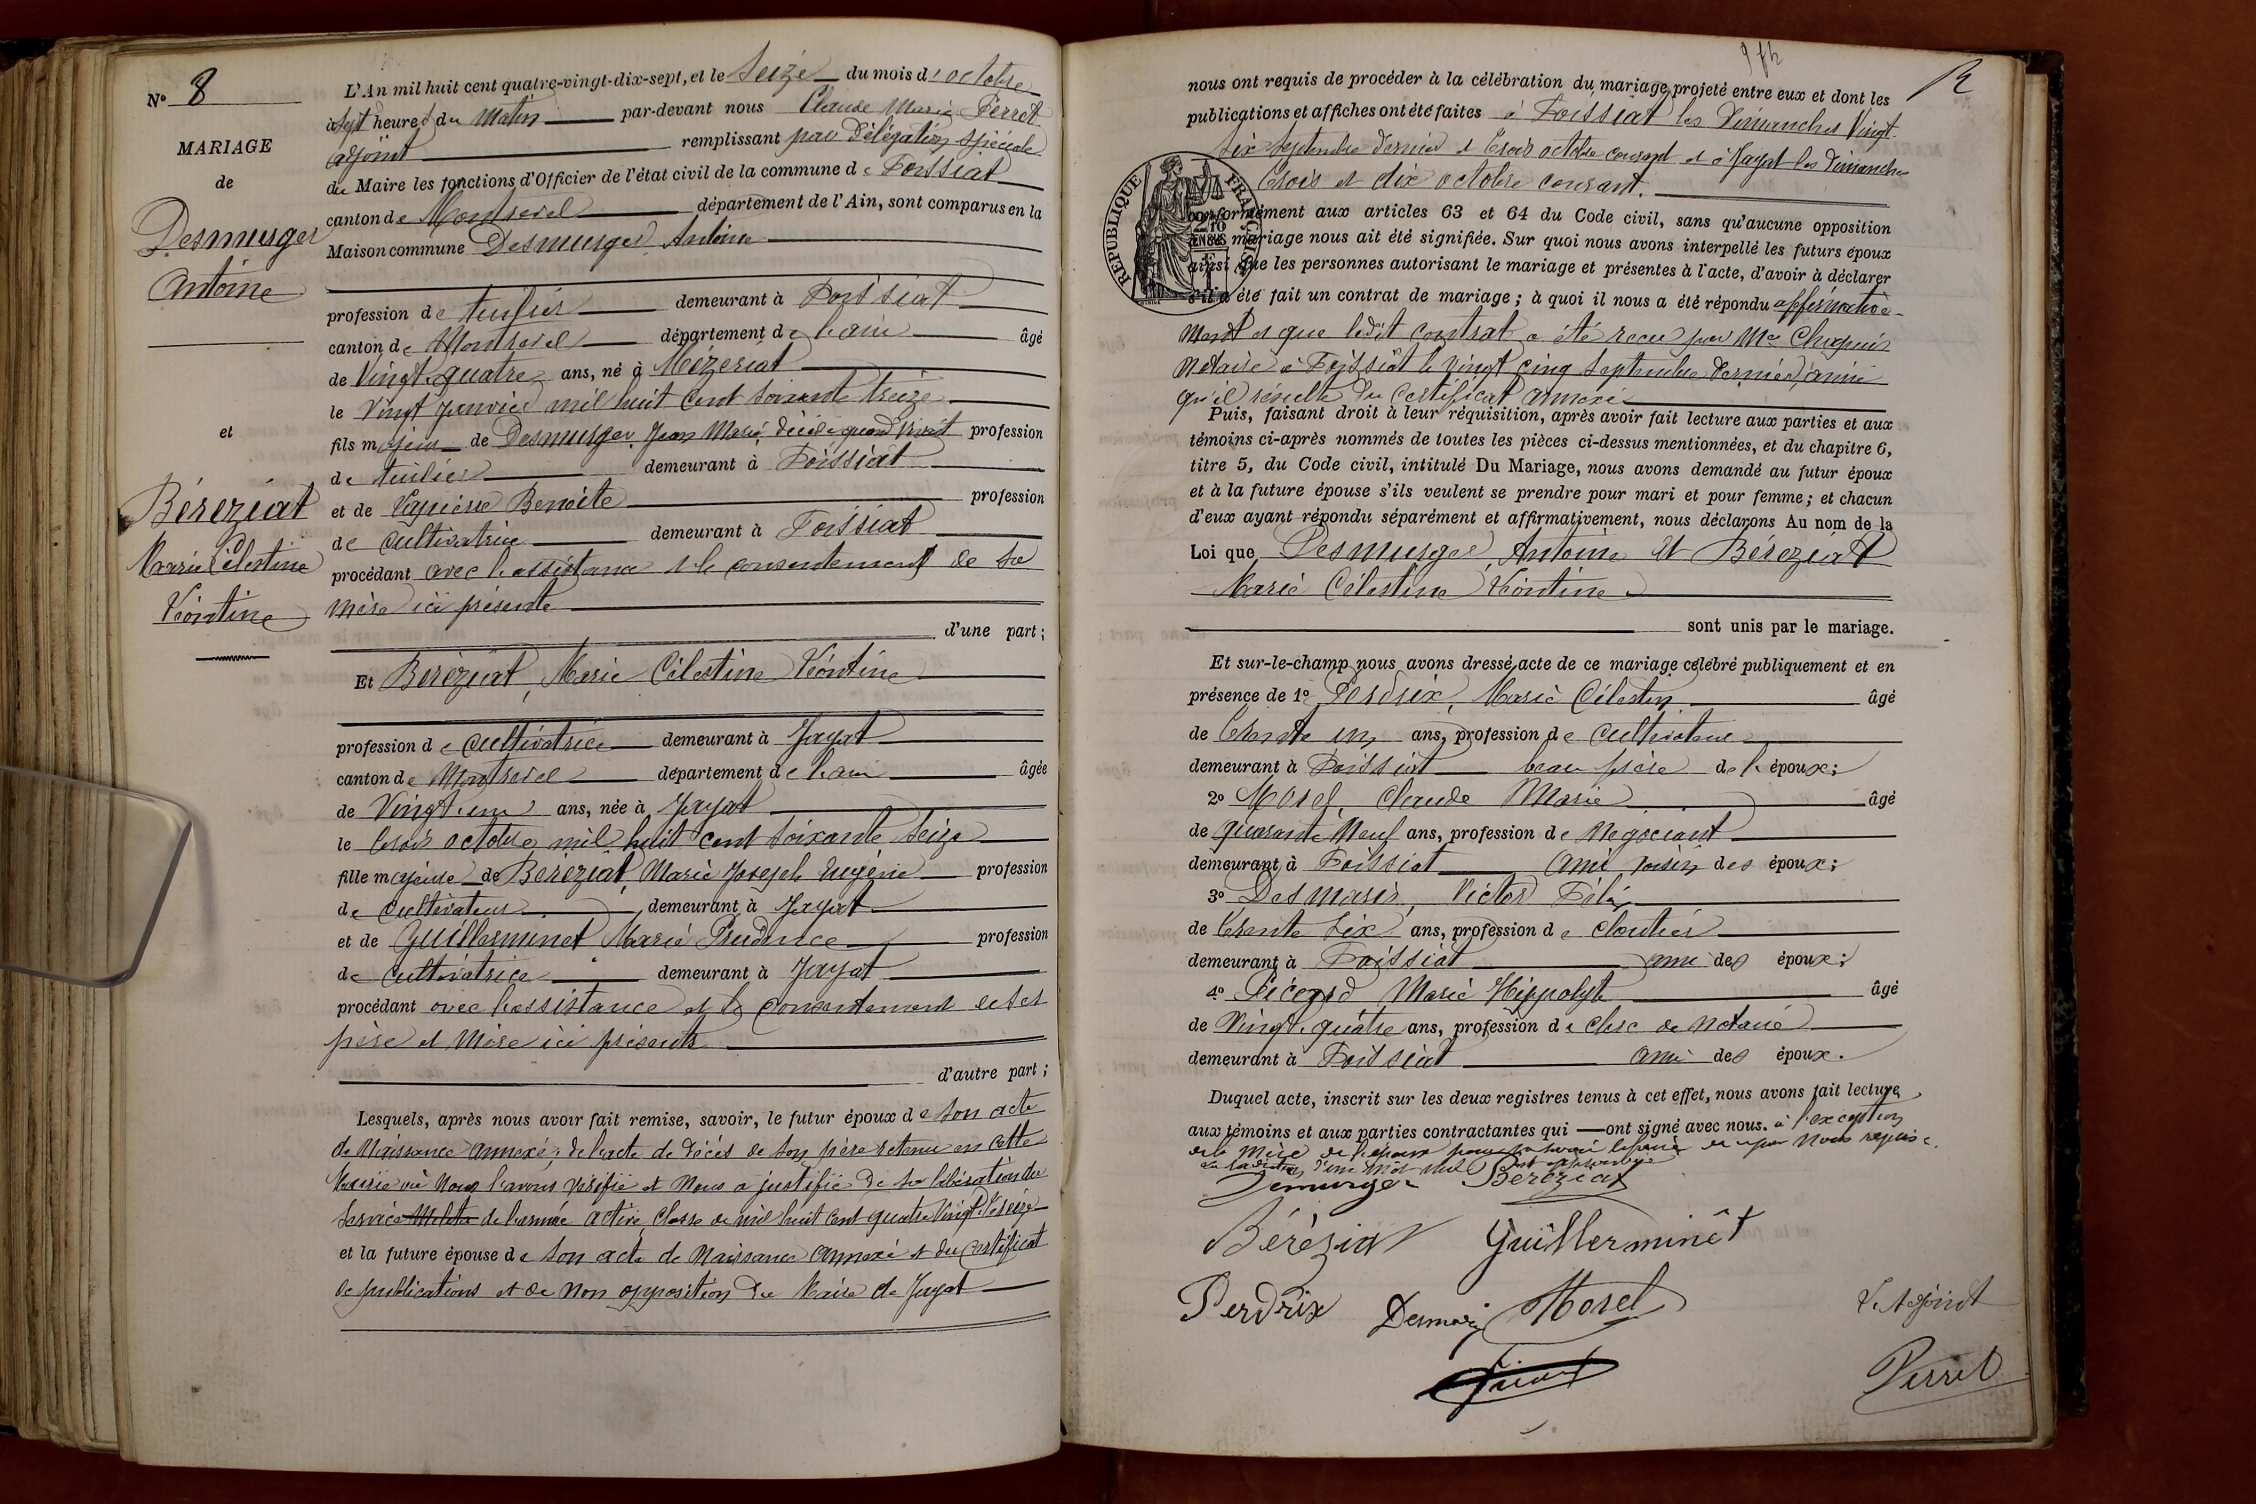 N° 8
MARIAGE
de
Desmurger
Antoine
et
Béreziat
Marie Célestine
Léontine
L'An mil huit cent quatre-vingt-dix-sept, et le Seize du mois d'octobre
à Sept heures du Matin par-devant nous Claude Marie Perret
adjoint remplissant par délégation spéciale
du Maire les fonctions d'Officier de l'état civil de la commune de Foissiat
canton de Montrevel département de l'Ain, sont comparus en la
Maison commune Desmurger Antoine
profession de tuilier demeurant à Foissiat
canton de Montrevel département de l'ain âgé
de Vingt quatre ans, né à Mézeriat
le Vingt Janvier mil huit cent soixante treize
fils majeur de Desmurger Jean Marie, décédé quand vivait profession
de tuilier demeurant à Foissiat
et de Lapierre Benoite profession
de cultivatrice demeurant à Foissiat
procédant avec l'assistance et le consentement de sa
mère ici présente
d'une part;
Et Béréziat, Marie Célestine Léontine
profession de cultivatrice demeurant à Jayat
canton de Montrevel département de l'ain âgée
de Vingt un ans, née à Jayat
le trois octobre mil huit cent soixante seize
fille majeure de Béréziat, Marie Joseph Eugène profession
de cultivateur demeurant à Jayat
et de Guillerminet Marie Prudence profession
de cultivatrice demeurant à Jayat
procédant avec l'assistance et le consentement de ses
père et Mère ici présents
d'autre part;
Lesquels, après nous avoir fait remise, savoir, le futur époux de son acte
de Naissance annexé; de l'acte de décès de son père retenu en cette
Mairie où Nous l'avons vérifié et Nous a justifié de sa libération du
service de l'armée active, classe de mil huit cent quatre Vingt treize
et la future épouse de son acte de Naissance annexé et du certificat
de publications et de non opposition du Maire de Jayat
nous ont requis de procéder à la célébration du mariage projeté entre eux et dont les
publications et affiches ont été faites à Foissiat les Dimanches Vingt
six Septembre dernier et trois octobre courant et à Jayat les dimanches
trois et dix octobre courant.
REPUBLIQUE FRANÇAISE
conformément aux articles 63 et 64 du Code civil, sans qu'aucune opposition
mariage nous ait été signifiée. Sur quoi nous avons interpellé les futurs époux
ainsi que les personnes autorisant le mariage et présentes à l'acte, d'avoir à déclarer
s'il a été fait un contrat de mariage; à quoi il nous a été répondu affirmative-
ment et que ledit contrat a été reçu par Me Chapuis
Notaire à Foissiat le vingt cinq Septembre dernier, ainsi
qu'il résulte du certificat annexé
Puis, faisant droit à leur réquisition, après avoir fait lecture aux parties et aux
témoins ci-après nommés de toutes les pièces ci-dessus mentionnées, et du chapitre 6,
titre 5, du Code civil, intitulé Du Mariage, nous avons demandé au futur époux
et à la future épouse s'ils veulent se prendre pour mari et pour femme; et chacun
d'eux ayant répondu séparément et affirmativement, nous déclarons Au nom de la
Loi que Desmurger, Antoine et Béreziat
Marie Célestine Léontine
sont unis par le mariage.
Et sur-le-champ nous avons dressé acte de ce mariage célébré publiquement et en
présence de 1° Perdrix, Marie Célestin âgé
de trente un ans, profession de cultivateur
demeurant à Foissiat beau frère de l'époux;
2° Morel, Claude Marie âgé
de quarante Neuf ans, profession de Négociant
demeurant à Foissiat ami voisin des époux;
3° Desmaris, Victor Félix
de trente six ans, profession de cloutier
demeurant à Foissiat ami des époux;
4° Marie Hippolyte âgé
de Vingt quatre ans, profession de clerc de Notaire
demeurant à Foissiat ami des époux.
Duquel acte, inscrit sur les deux registres tenus à cet effet, nous avons fait lecture
aux témoins et aux parties contractantes qui ont signé avec nous. à l'exception
de la Mère de l'époux pour ne savoir le faire de ce par Nous requise.
d'un mot nul
Demurger Béréziat
Béréziat Guillerminèt
Perdrix Desmaris Morel
L'Adjoint
Perret